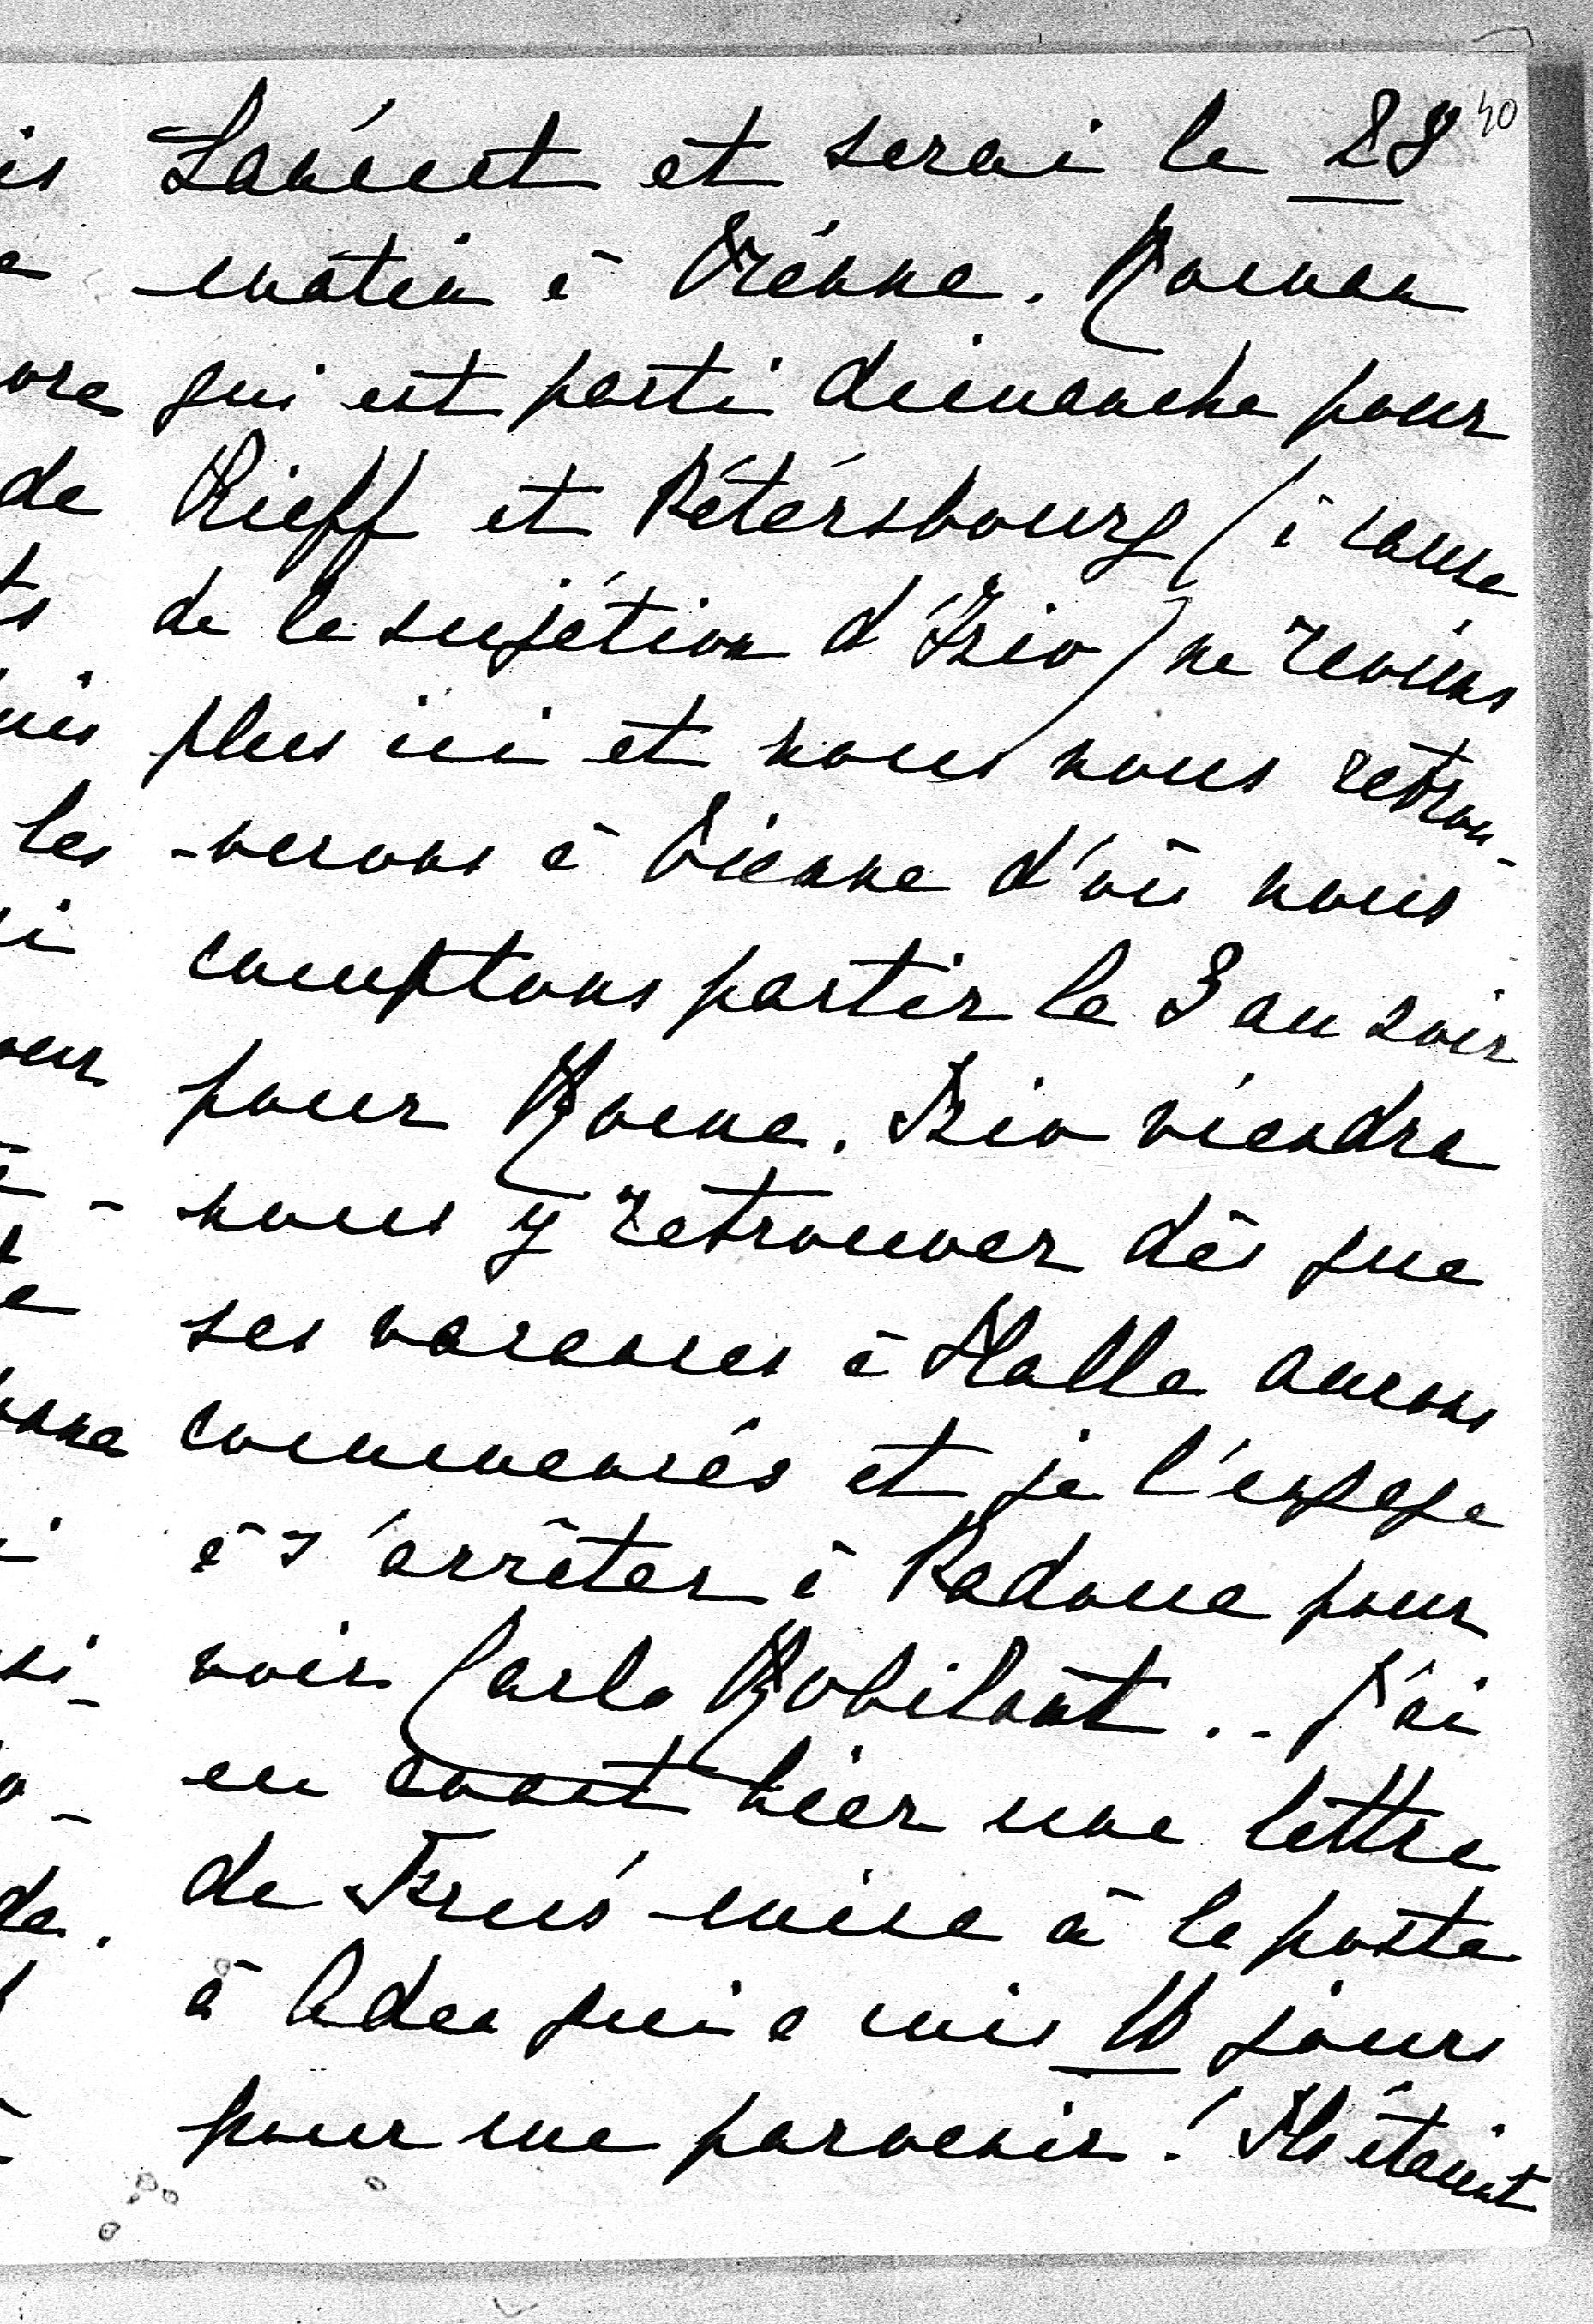 40
is Lancut et serai le 28
e matin à Vienne. Roman
ore qui est parti dimanche pour
de Kieff et Pétersbourg (à cause
ts de la sujétion d'Izio) ne reviens
uis plus ici et nous nous retrou-
les -verons à Vienne d'où nous
i comptons partir le 3 au soir
our pour Rome. Izio viendra
- nous y retrouver dès que
e ses vacances à Halle aurons
onne commencés et je l'engage
i à s'arrêter à Padoue pour
si- voir Carlo Robilant.. J'ai
o- eu avant hier une lettre
da. de mise à la poste
à Aden qui a mis jours
pour me parvenir! Ils étaient